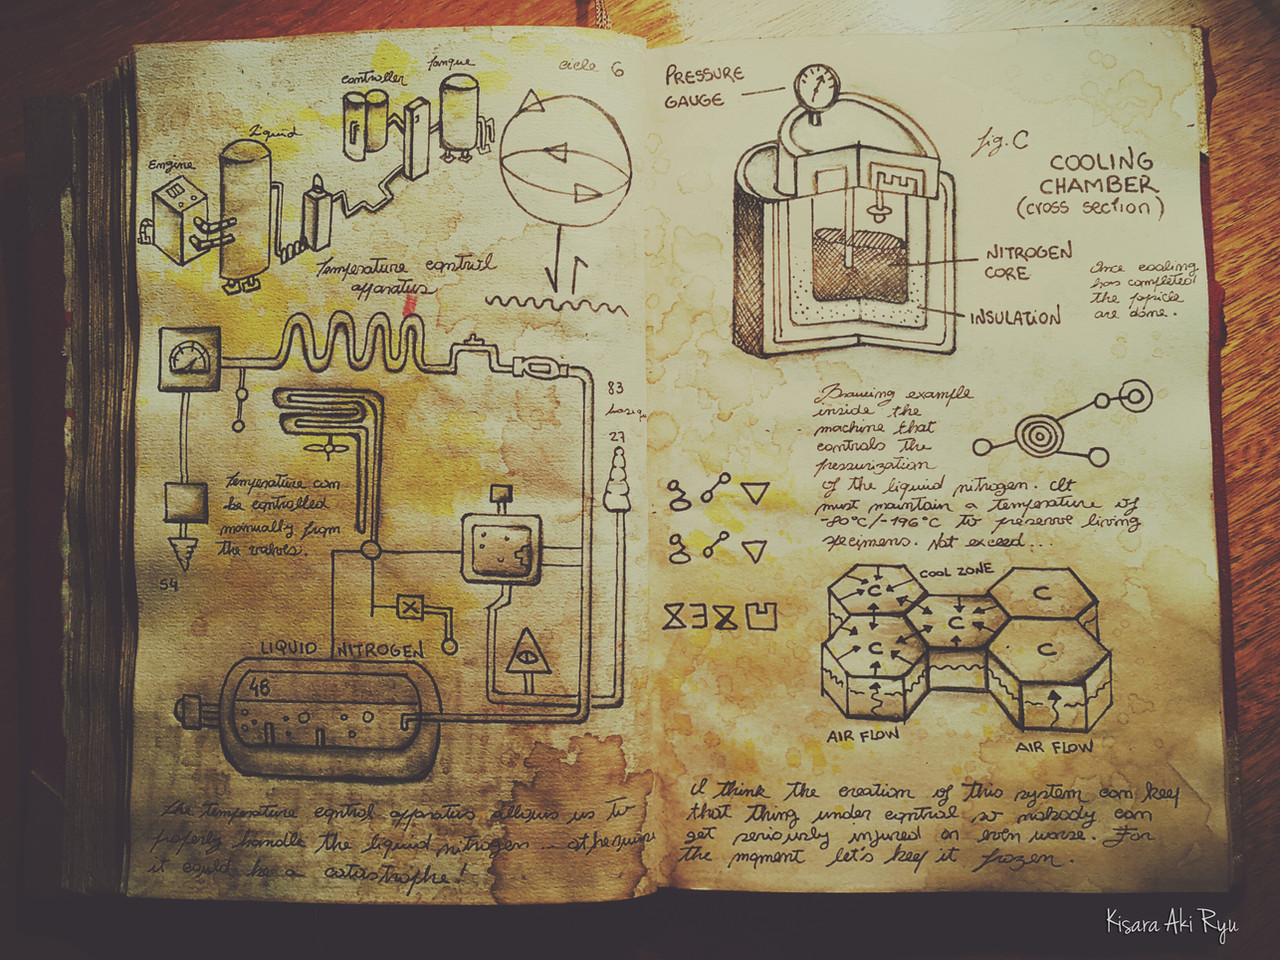 cicle 6
controller
Tanque
Liquid
Engine
Temperature control
apparatus
83
27
Temperature can
be controlled
manually from
the valves.
54
LIQUID NITROGEN
46
The temperature control apparatus allows us to
properly handle the liquid nitrogen... otherwise
it could be a catastrophe!
PRESSURE
GAUGE
fig. C
COOLING
CHAMBER
(cross section)
NITROGEN
CORE
INSULATION
Once cooling
has completed
the popicle
are done.
Drawing example
inside the
machine that
controls the
pressurization
of the liquid nitrogen. It
must maintain a temperature of
-80°C/-196°C to preserve living
specimens. Not exceed...
COOL ZONE
C
C
C
C
C
AIR FLOW
AIR FLOW
I think the creation of this system can keep
that thing under control, so nobody can
get seriously injured or even worse. For
the moment let's keep it frozen.
Kisara Aki Ryu